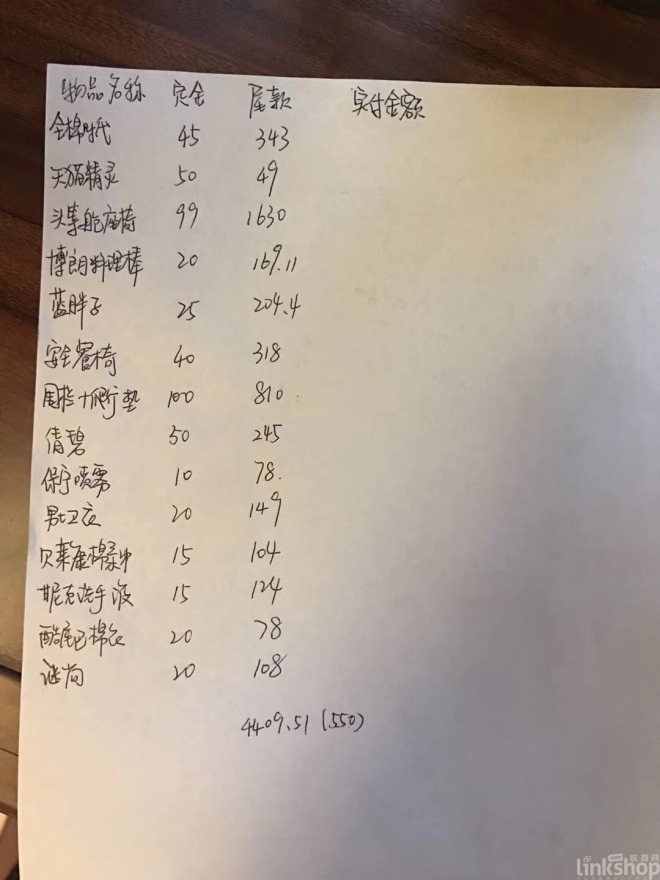 物品名称 定金 尾款 实付金额
全棉时代 45 343
天猫精灵 50 49
头等舱座椅 99 1630
博朗料理棒 20 169.11
蓝胖子 25 204.4
安全餐椅 40 318
围栏+爬行垫 100 810
倩碧 50 245
保宁喷雾 10 78.
男士卫衣 20 149
贝莱康棉柔巾 15 104
斯尼克洗手液 15 124
酷尾巴棉衣 20 78
谜尚 20 108
4409.51 (550)
联商网
linkshop